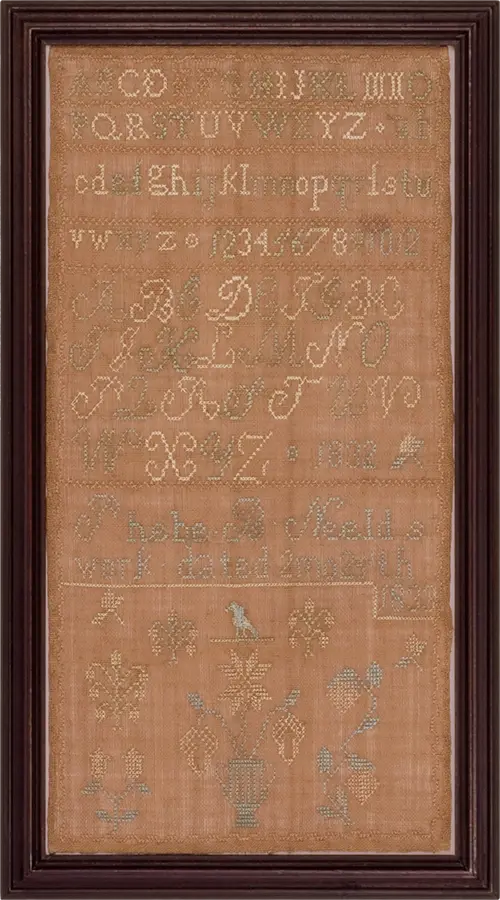 ABCDEFGHIJKLMNO
PQRSTUVWXYZ ab
cdefghijklmnopqrlstu
vwxyz 123456789101112
ABCDEFGH
IJKLMNO
PQRSTUV
WXYZ
Phebe B Neelds
work dated